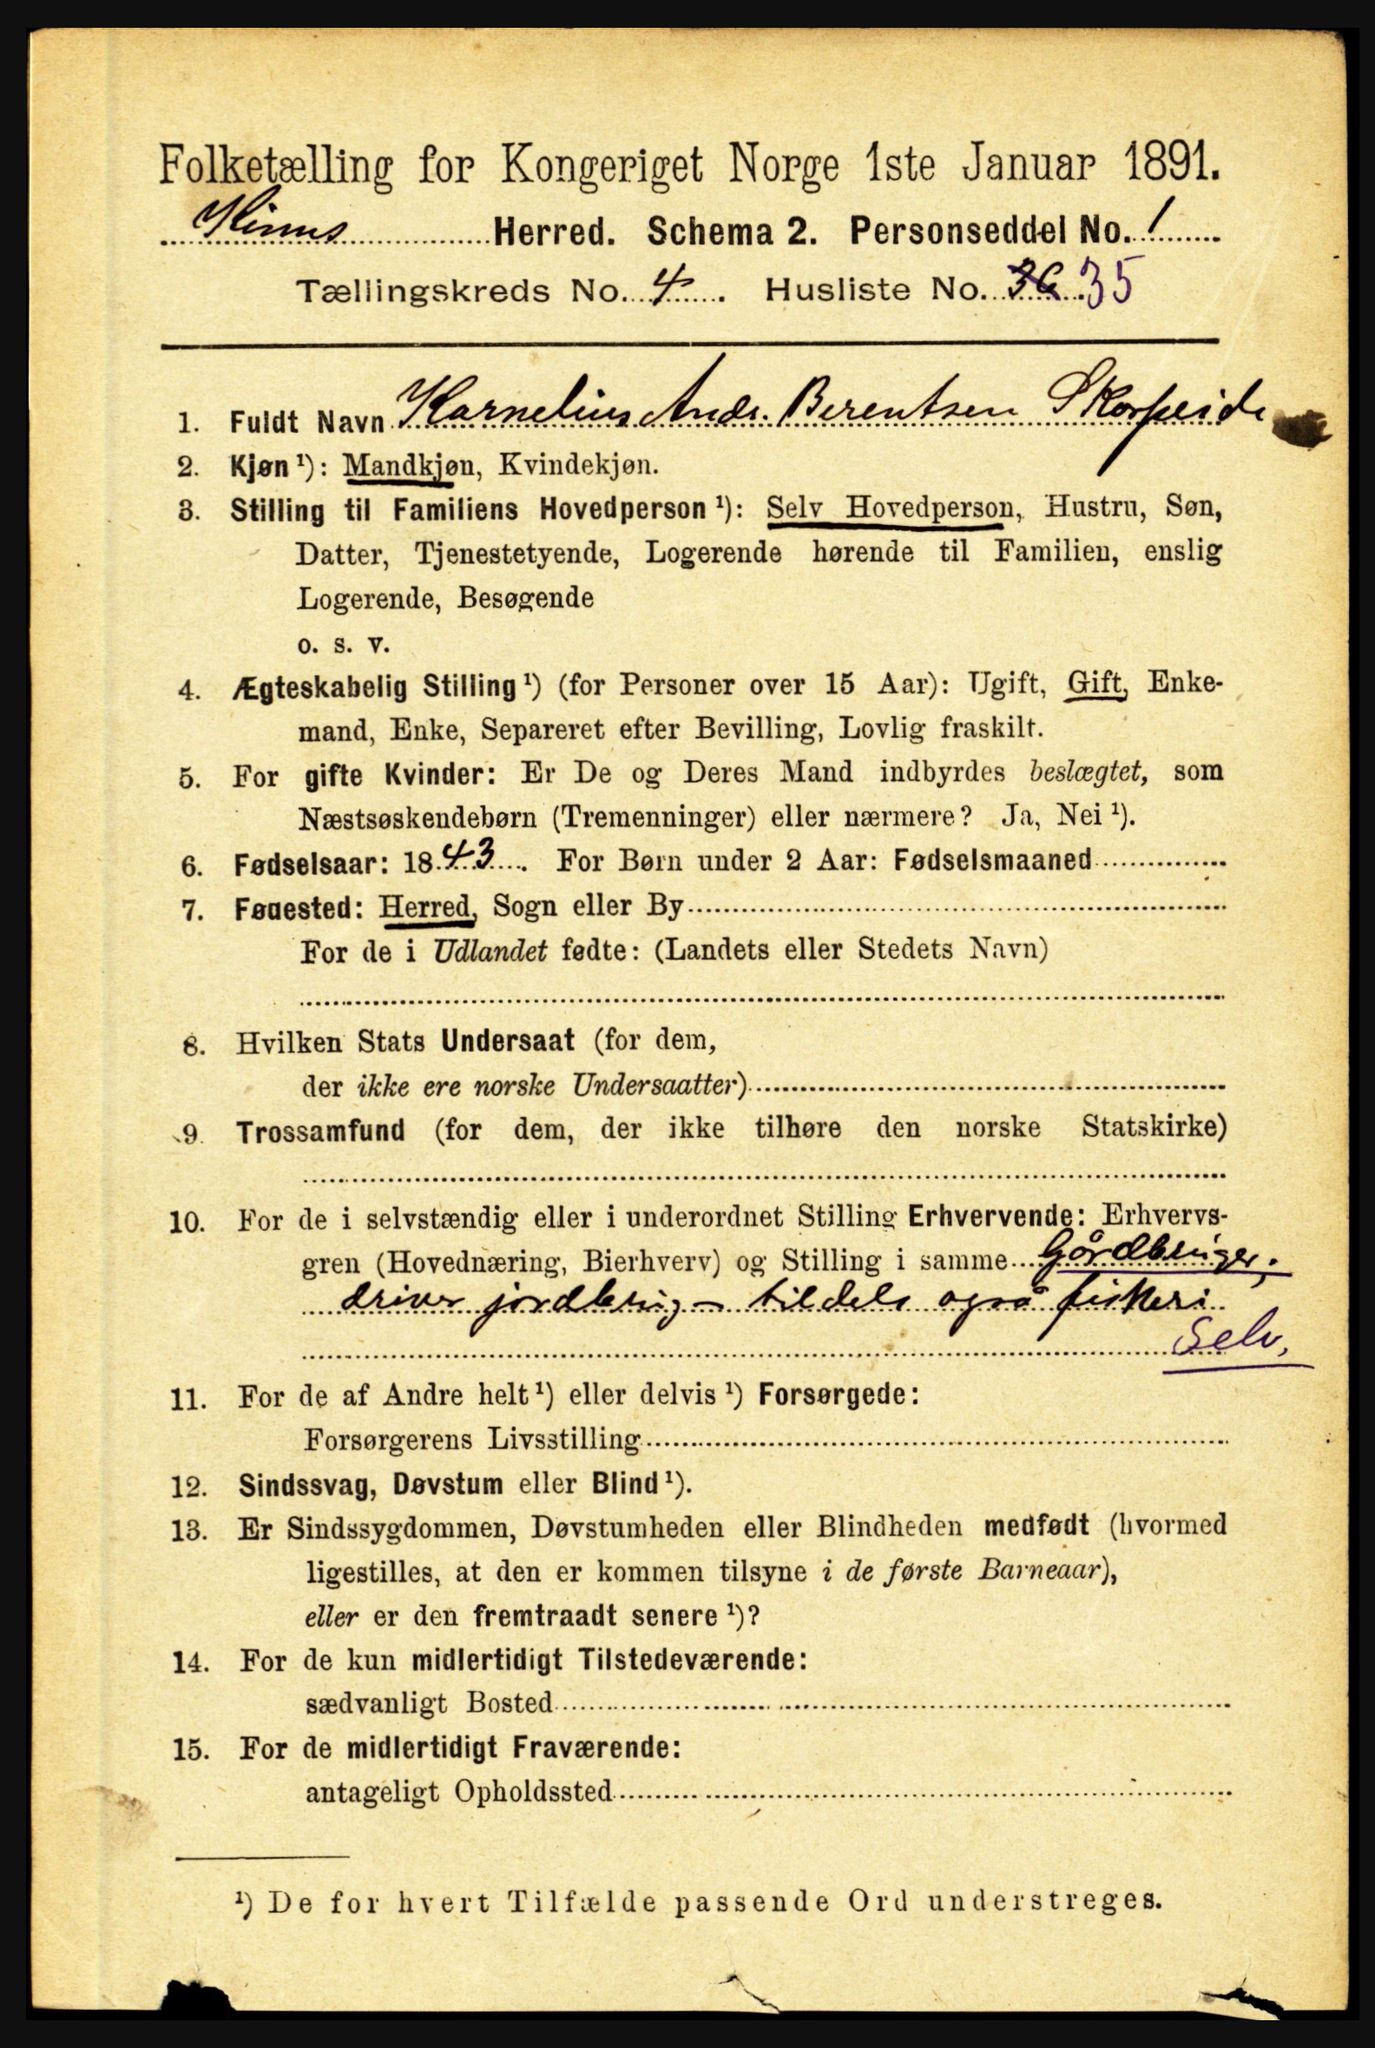 Folketælling for Kongeriget Norge 1ste Januar 1891.
Kinns Herred. Schema 2. Personseddel No. 1
Tællingskreds No. 4. Husliste No. 36 35
1. Fuldt Navn Kornelius Andr. Berentsen Skorpeide
2. Kjøn ¹): Mandkjøn, Kvindekjøn.
3. Stilling til Familiens Hovedperson ¹): Selv Hovedperson, Hustru, Søn,
Datter, Tjenestetyende, Logerende hørende til Familien, enslig
Logerende, Besøgende
o. s. v.
4. Ægteskabelig Stilling ¹) (for Personer over 15 Aar): Ugift, Gift, Enke-
mand, Enke, Separeret efter Bevilling, Lovlig fraskilt.
5. For gifte Kvinder: Er De og Deres Mand indbyrdes beslægtet, som
Næstsøskendebørn (Tremenninger) eller nærmere? Ja, Nei ¹).
6. Fødselsaar: 1843. For Børn under 2 Aar: Fødselsmaaned
7. Føuested: Herred, Sogn eller By
For de i Udlandet fødte: (Landets eller Stedets Navn)
8. Hvilken Stats Undersaat (for dem,
der ikke ere norske Undersaatter)
9. Trossamfund (for dem, der ikke tilhøre den norske Statskirke)
10. For de i selvstændig eller i underordnet Stilling Erhvervende: Erhvervs-
gren (Hovednæring, Bierhverv) og Stilling i samme Gårdbruger;
driver jordbrug – tildels også fiskeri
Selv.
11. For de af Andre helt ¹) eller delvis ¹) Forsørgede:
Forsørgerens Livsstilling
12. Sindssvag, Døvstum eller Blind ¹).
13. Er Sindssygdommen, Døvstumheden eller Blindheden medfødt (hvormed
ligestilles, at den er kommen tilsyne i de første Barneaar),
eller er den fremtraadt senere ¹)?
14. For de kun midlertidigt Tilstedeværende:
sædvanligt Bosted
15. For de midlertidigt Fraværende:
antageligt Opholdssted
¹) De for hvert Tilfælde passende Ord understreges.